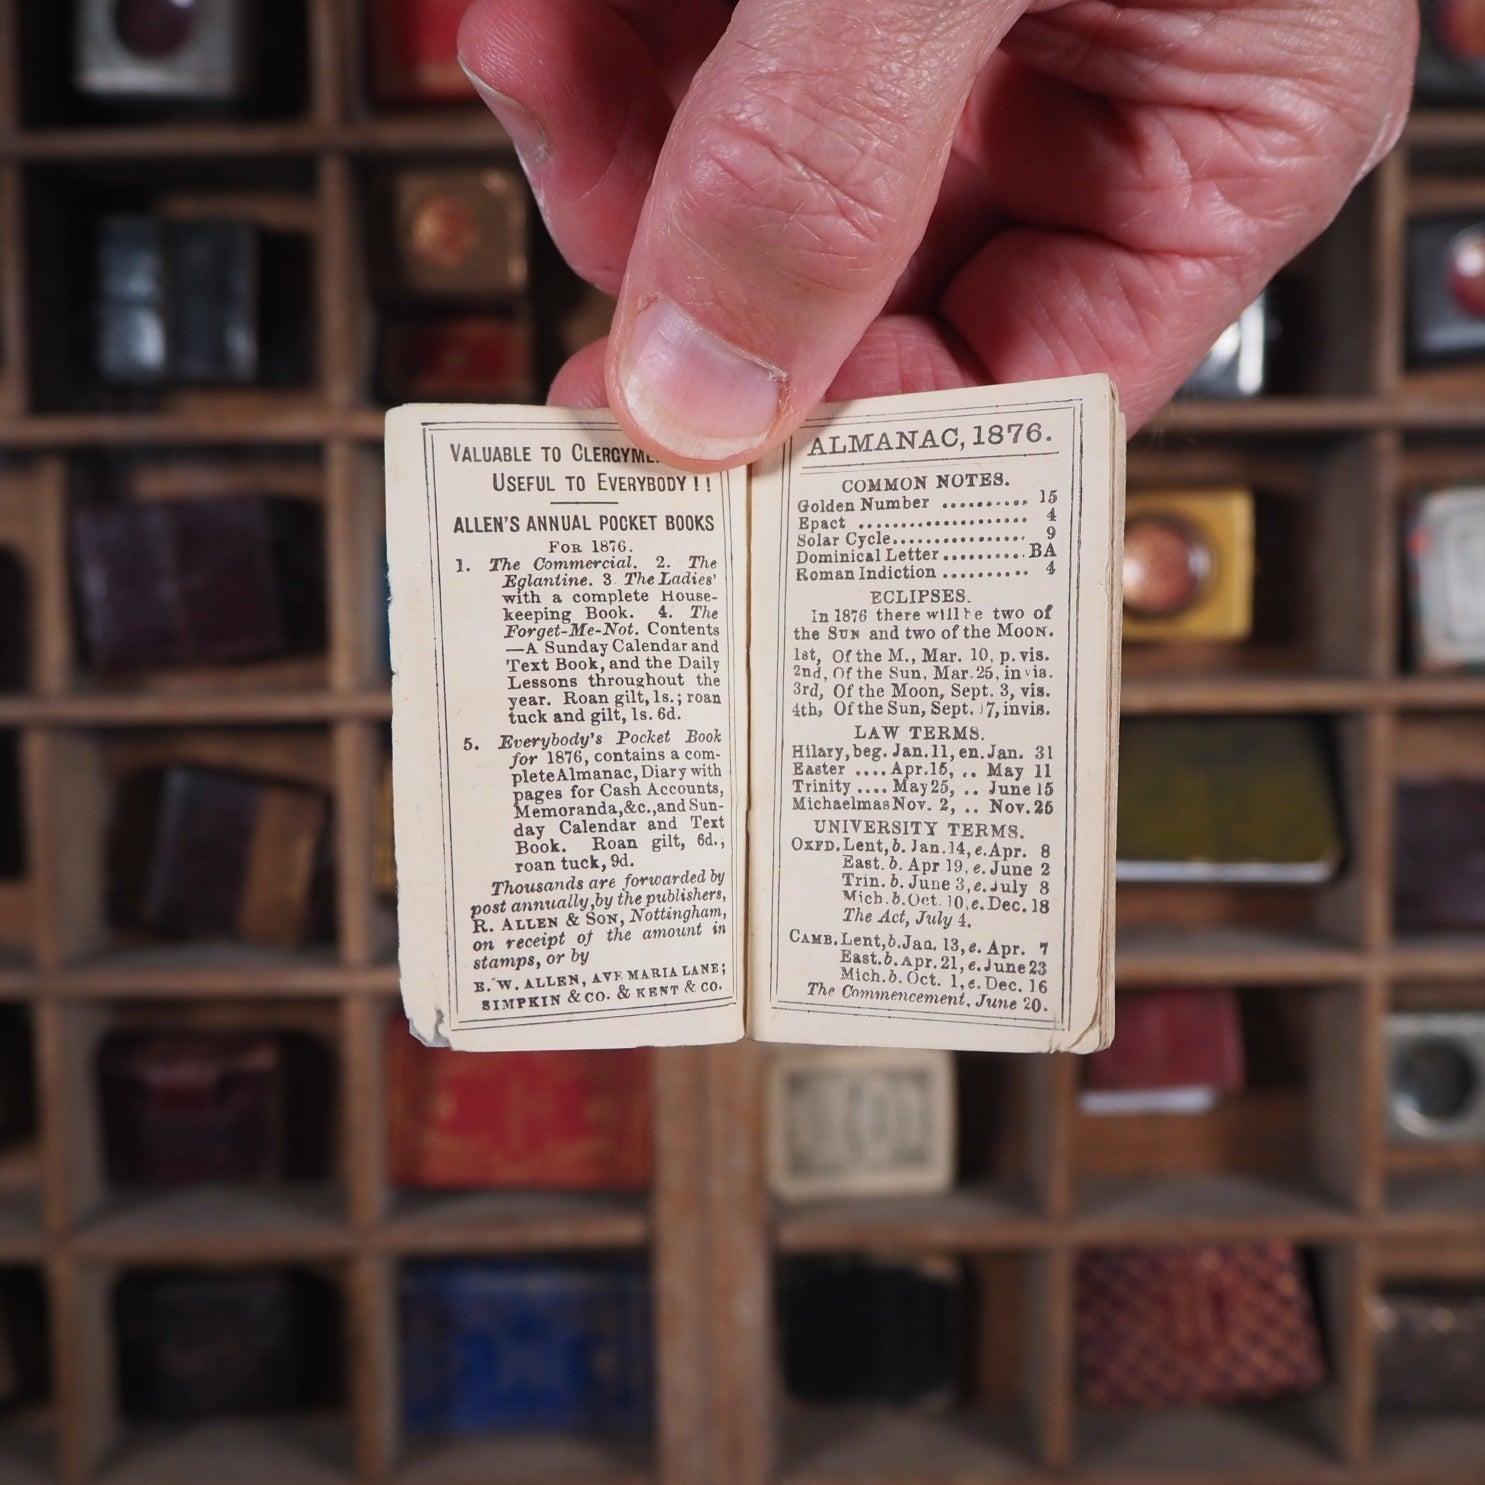 VALUABLE TO
USEFUL TO EVERYBODY !!
ALLEN'S ANNUAL POCKET BOOKS
FOR 1876.
1. The Commercial. 2. The
Eglantine. 3 The Ladies'
with a complete House-
keeping Book. 4. The
Forget-Me-Not. Contents
—A Sunday Calendar and
Text Book, and the Daily
Lessons throughout the
year. Roan gilt, 1s.; roan
tuck and gilt, 1s. 6d.
5. Everybody's Pocket Book
for 1876, contains a com-
plete Almanac, Diary with
pages for Cash Accounts,
Memoranda, &c., and Sun-
day Calendar and Text
Book. Roan gilt, 6d.,
roan tuck, 9d.
Thousands are forwarded by
post annually, by the publishers,
R. ALLEN & SON, Nottingham,
on receipt of the amount in
stamps, or by
E. W. ALLEN, AVE MARIA LANE;
SIMPKIN & CO. & KENT & CO.
ALMANAC, 1876.
COMMON NOTES.
Golden Number .......... 15
Epact .................... 4
Solar Cycle................ 9
Dominical Letter.......... BA
Roman Indiction .......... 4
ECLIPSES.
In 1876 there will be two of
the SUN and two of the MOON.
1st, Of the M., Mar. 10, p. vis.
2nd, Of the Sun, Mar. 25, invis.
3rd, Of the Moon, Sept. 3, vis.
4th, Of the Sun, Sept. 17, invis.
LAW TERMS.
Hilary, beg. Jan. 11, en. Jan. 31
Easter .... Apr. 15, .. May 11
Trinity .... May 25, .. June 15
Michaelmas Nov. 2, .. Nov. 25
UNIVERSITY TERMS.
OXFD. Lent, b. Jan. 14, e. Apr. 8
East. b. Apr 19, e. June 2
Trin. b. June 3, e. July 8
Mich. b. Oct. 10, e. Dec. 18
The Act, July 4.
CAMB. Lent, b. Jan. 13, e. Apr. 7
East. b. Apr. 21, e. June 23
Mich. b. Oct. 1, e. Dec. 16
The Commencement, June 20.